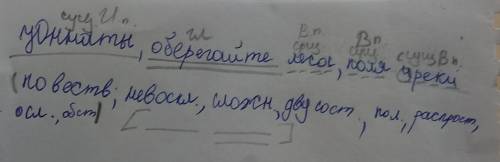 сущ И.п. гл В.п. сущ В.п. сущ сущ В.п.
юннаты, оберегайте леса, поля и реки
(повеств; невоскл., сложн, двусост., пол., распрост,
осл., обст)